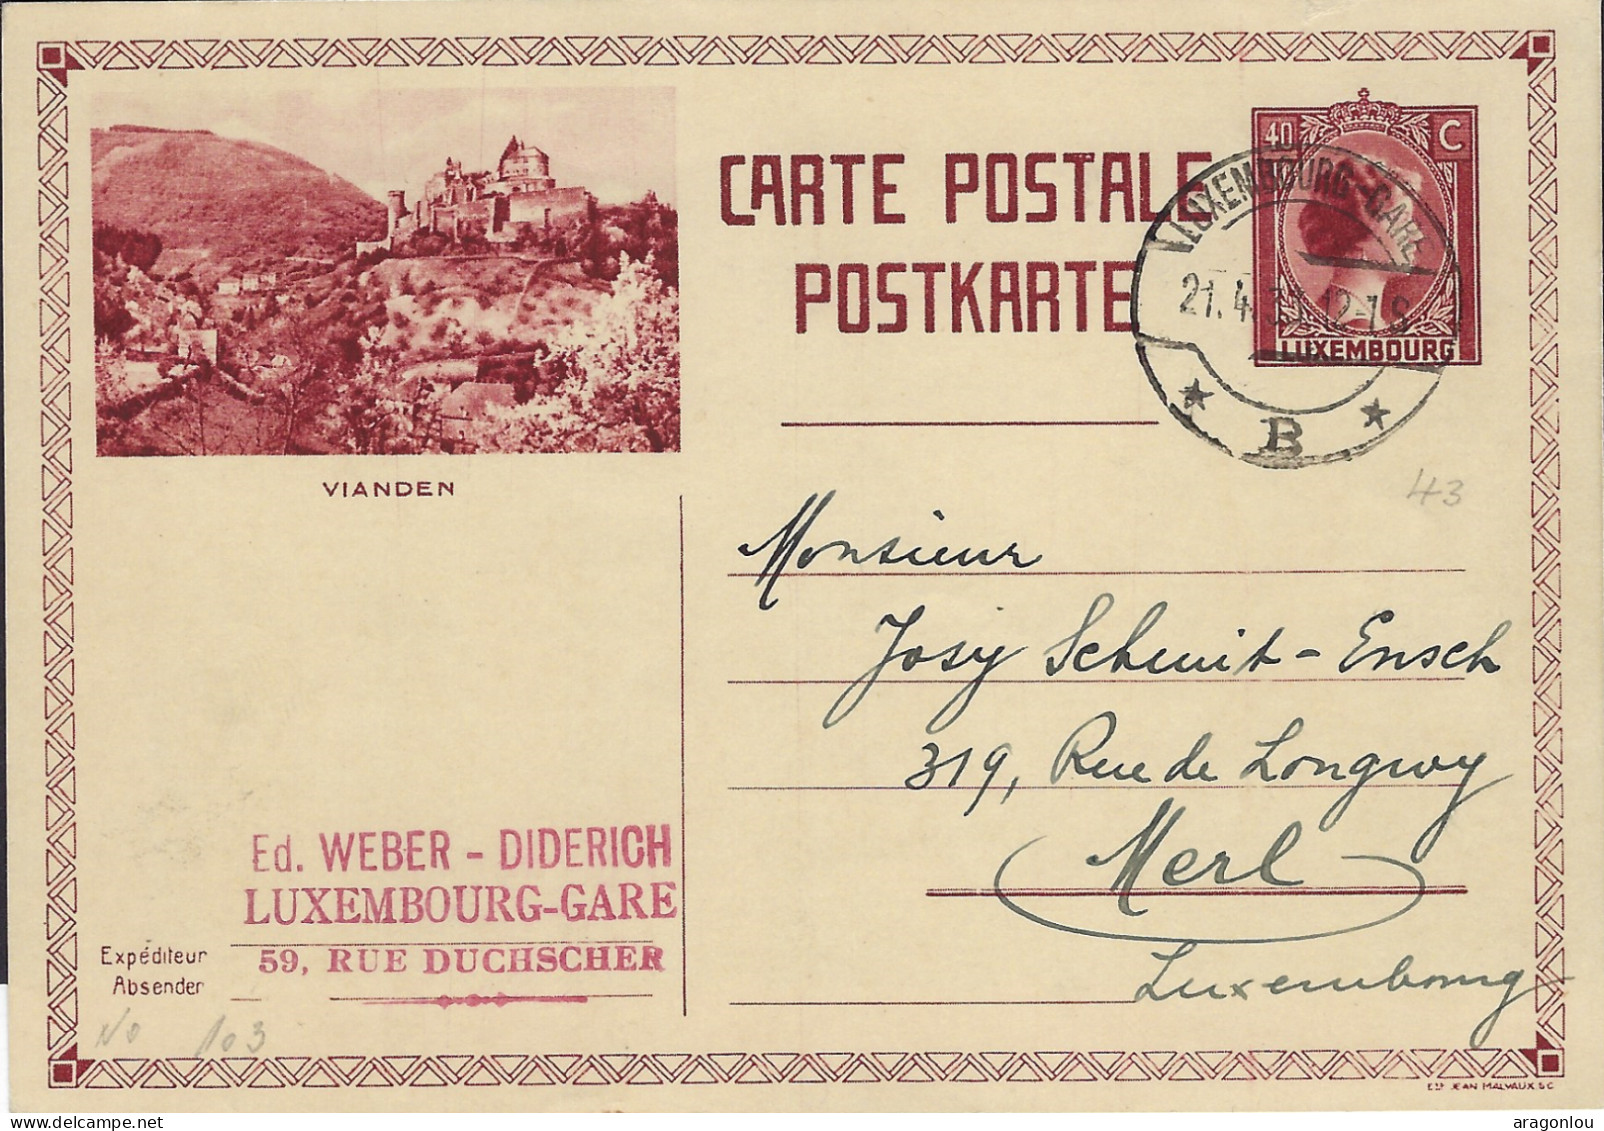 CARTE POSTALE
POSTKARTE
40 C
LUXEMBOURG
LUXEMBOURG-GARE
21.4.33.12-19
B
VIANDEN
43
Monsieur
Josy Schmit-Ensch
319, Rue de Longwy
Merl
Luxembourg
Ed. WEBER - DIDERICH
LUXEMBOURG-GARE
59, RUE DUCHSCHER
Expéditeur
Absender
No 103
Ets JEAN MALVAUX.S.C.
aragonlou